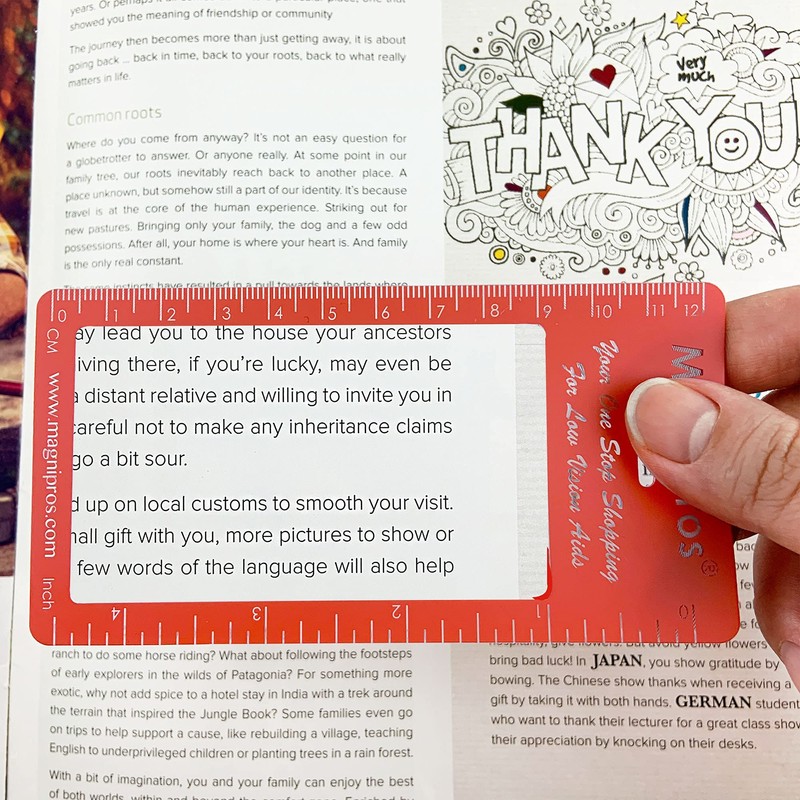 years. Or perhaps it
showed you the meaning of friendship or community
The journey then becomes more than just getting away, it is about
going back ... back in time, back to your roots, back to what really
matters in life.
Common roots
Where do you come from anyway? It's not an easy question for
a globetrotter to answer. Or anyone really. At some point in our
family tree, our roots inevitably reach back to another place. A
place unknown, but somehow still a part of our identity. It's because
travel is at the core of the human experience. Striking out for
new pastures. Bringing only your family, the dog and a few odd
possessions. After all, your home is where your heart is. And family
is the only real constant.
The same instincts have resulted in a pull towards the lands where
THANK YOU
very
much
0 1 2 3 4 5 6 7 8 9 10 11 12
CM
www.magnipros.com
Inch
ay lead you to the house your ancestors
iving there, if you're lucky, may even be
a distant relative and willing to invite you in
careful not to make any inheritance claims
go a bit sour.
d up on local customs to smooth your visit.
nall gift with you, more pictures to show or
few words of the language will also help
Your One Stop Shopping
For Low Vision Aids
4 3 2 1 0
ranch to do some horse riding? What about following the footsteps
of early explorers in the wilds of Patagonia? For something more
exotic, why not add spice to a hotel stay in India with a trek around
the terrain that inspired the Jungle Book? Some families even go
on trips to help support a cause, like rebuilding a village, teaching
English to underprivileged children or planting trees in a rain forest.
With a bit of imagination, you and your family can enjoy the best
of both worlds, within and beyond the comfort zone. Enriched by
hospitality, give flowers. But avoid yellow flowers
bring bad luck! In JAPAN, you show gratitude by
bowing. The Chinese show thanks when receiving a
gift by taking it with both hands. GERMAN student
who want to thank their lecturer for a great class show
their appreciation by knocking on their desks.